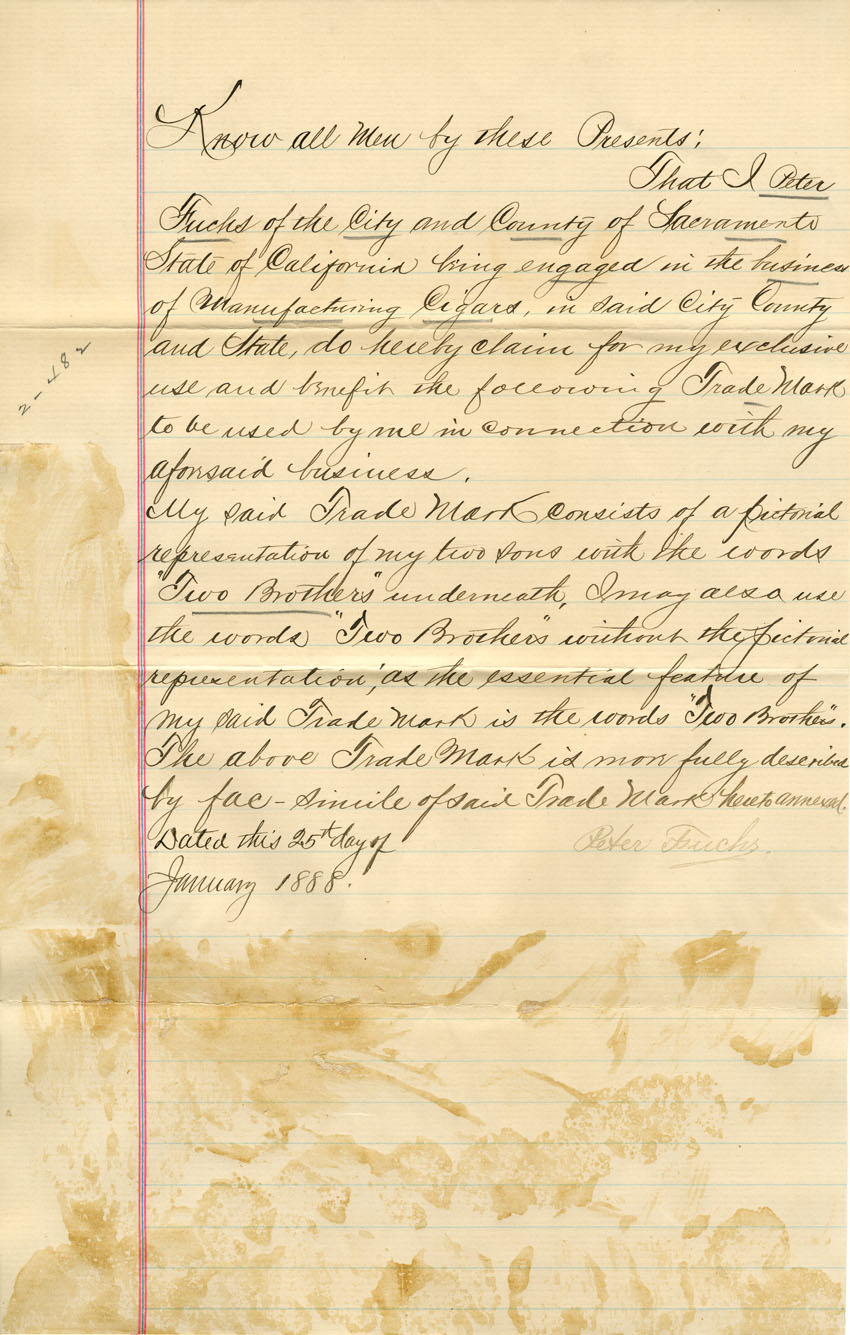 Know all Men by these Presents;
That I Peter
Fuchs of the City and County of Sacramento
State of California being engaged in the business
of Manufacturing Cigars, in said City County
and State, do hereby claim for my exclusive
use and benefit the following Trade Mark
to be used by me in connection with my
aforesaid business.
My said Trade Mark consists of a pictorial
representation of my two sons with the words
"Two Brothers" underneath, I may also use
the words "Two Brothers" without the pictorial
representation, as the essential feature of
my said Trade Mark is the words "Two Brothers".
The above Trade Mark is more fully described
by fac-simile of said Trade Mark hereto annexed.
Dated this 25th day of
Peter Fuchs.
January 1888.
2-482